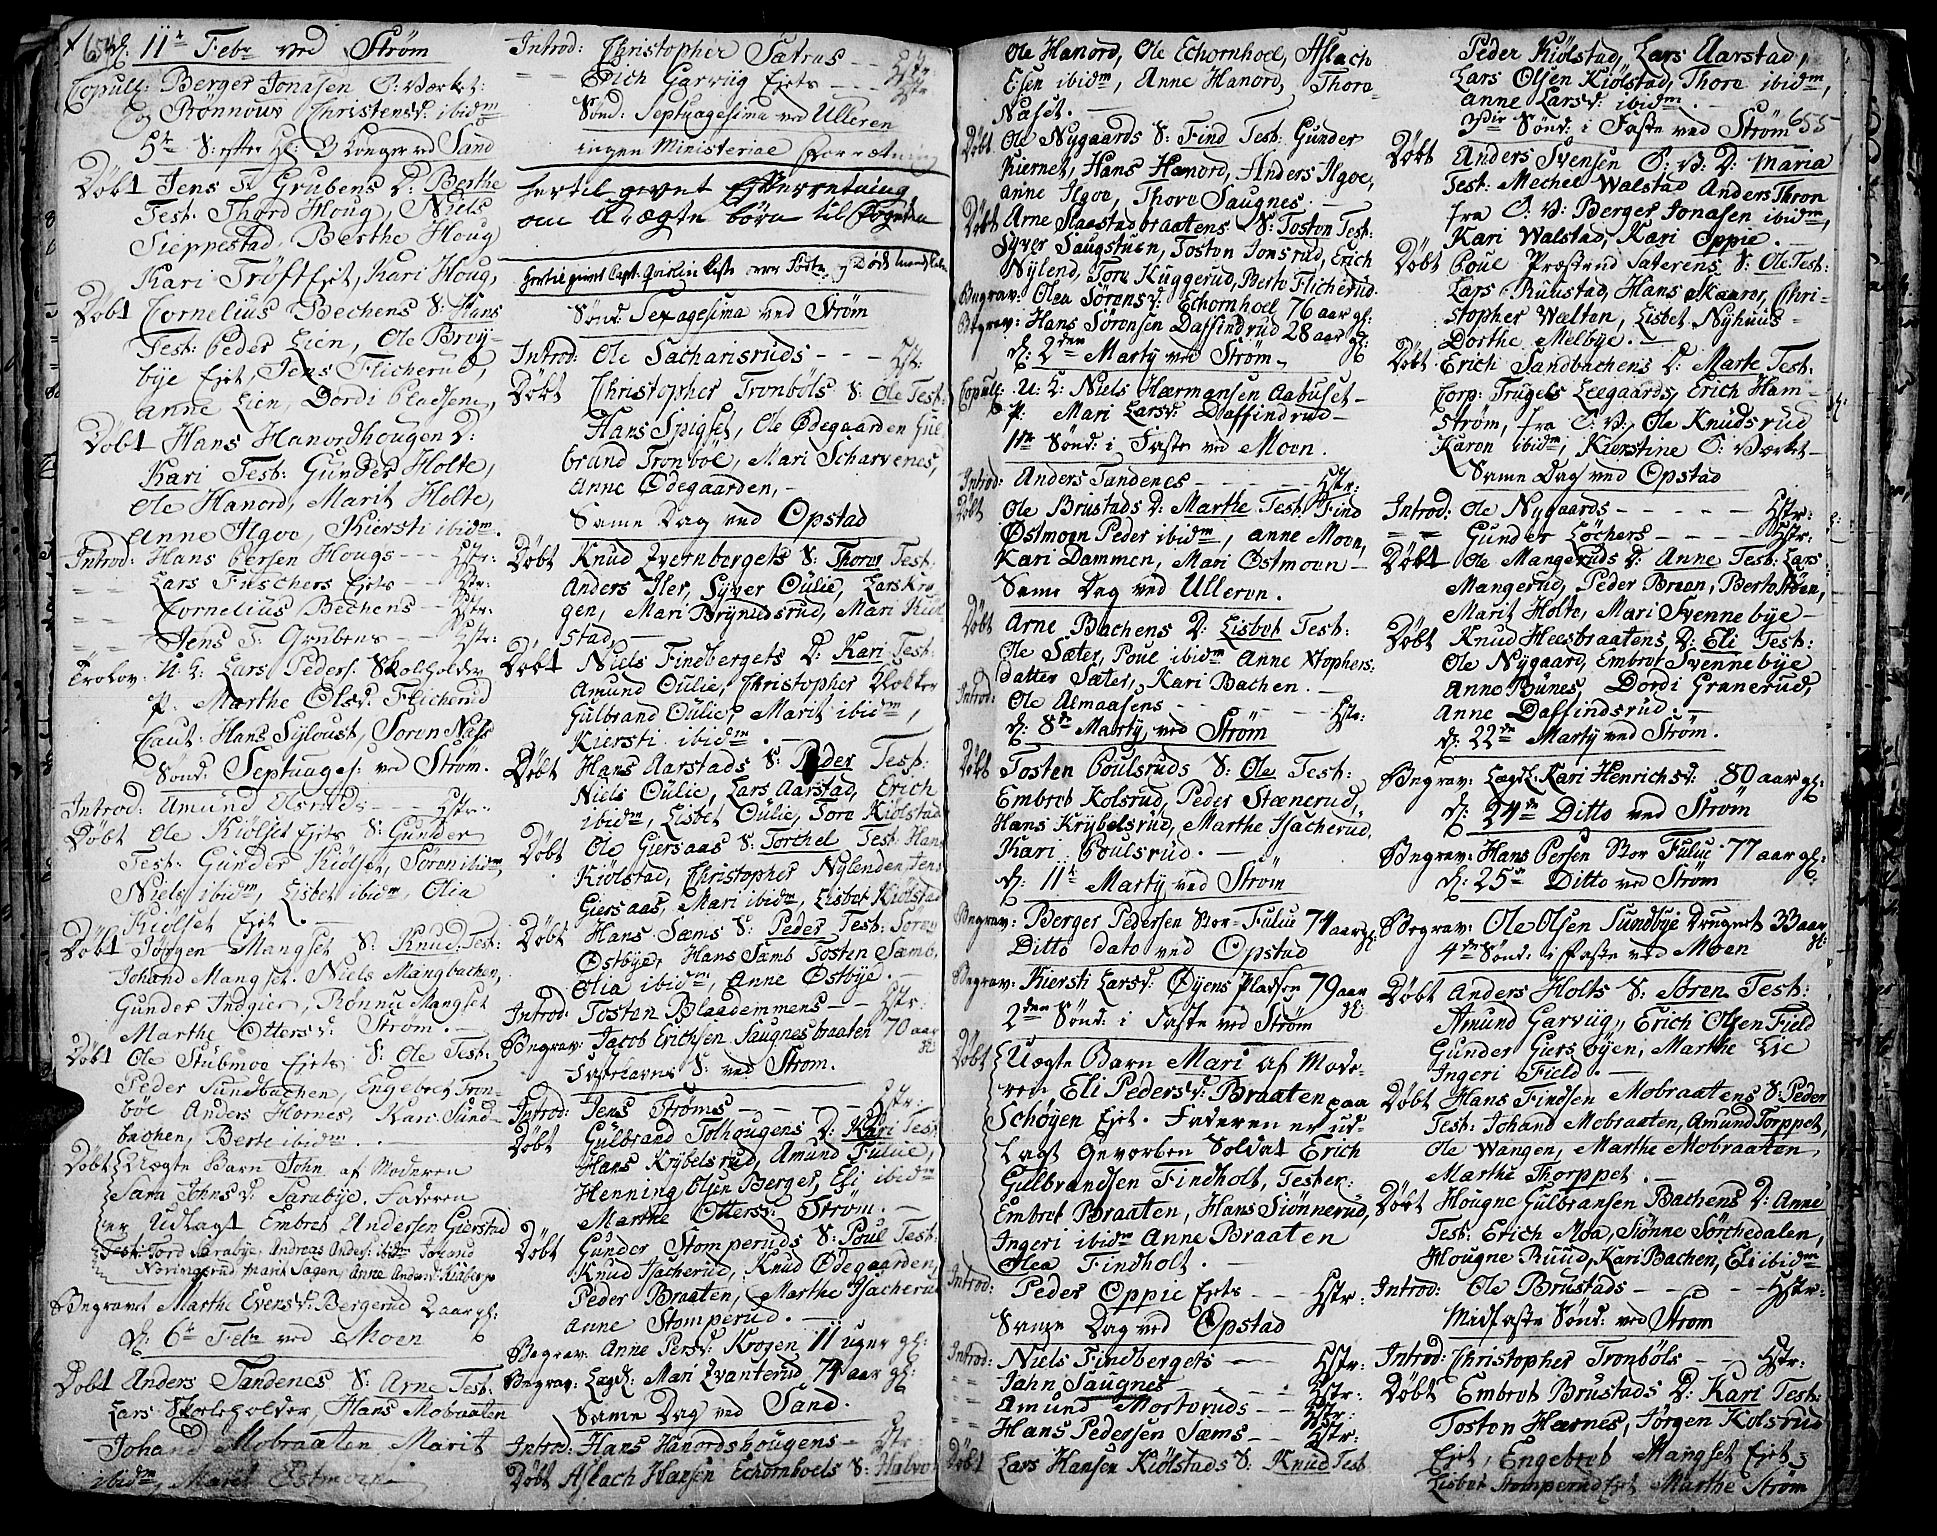 d: 11te Febr ved Strøm
Copull: Berger Jonasen O: Værket:
og Rønnoug Christensd: ibidm
5te S: effter H: 3 Konger ved Sand
Døbt Jens T. Grubens D: Berthe
Test: Thord Houg, Niels
Sieppestad, Berthe Houg
Kari Trøft Eyet, Kari Houg,
Døbt Cornelius Bechens S: Hans
Test: Peder Lien, Ole Bröy-
bye Ejet, Jens Flicherud,
Anne Lien, Dordi Pladsene,
Døbt Hans Hanordhougen D:
Kari Test: Gunder Holte,
Ole Hanord, Marit Holte,
Anne Ilgoe, Kiersti ibidm.
Introd: Hans Persen Hougs --- Hstr:
= = Lars Fischers Ejets -- Hstr:
= = Cornelius Bechens -- Hstr:
= = Jens T. Grubens -- Hstr:
Trolov: U: K: Lars Peders: Skoleholder
P. Marthe Olsd: Flicherud
Caut: Hans Syloust, Soren Næss
Sønd: Septuages: ved Strøm.
Introd: Amund Olsruds --- Hstr:
Døbt Ole Kiölset Ejets S: Gunder
Test: Gunder Kiölset, Søren ibidm,
Niels ibidm, Lisbet ibidm, Olia
Kiölset Ejet.
Døbt Jørgen Mangset S: Knud Test:
Johand Mangset, Niels Mangbachen,
Gunder Indgier, Rønnue Mangset
Marthe Ottersd: Strøm.
Døbt Ole Stubmoe Ejets S: Ole Test:
Peder Sundbachen, Engebret Tron-
böe Anders Hornes, Kari Sund-
bachen, Berte ibidm.
Døbt Uægte Barn John af Moderen
Sara Johnsd: Sarabye. Faderen
er Udlagt Embret Andersen Gierstad
Test: Tord Sarabye, Andreas Anders: ibidm Johand
Noringsrud Marit Sagen, Anne Andersd:
Begravet Marthe Evensd: Bergerud 2 aar gl:
d: 6te Febr ved Moen
Døbt Anders Tandenes S: Arne Test:
Lars Skoleholder, Hans Mobraaten
Johand Mobraaten Marit
ibidm, Marit Østmoen
Introd: Christopher Sætras -- Hstr
= = Erich Garviig Ejets --- Hstr
Sönd: Septuagesima ved Ulleren
ingen Ministerial Forretning
hertil gevet Efterretning
om Uægte börn til Fogden
hertil gevet Capt: Liste over Föde og Döde
Sönd: Sexagesima ved Strøm
Introd: Ole Sacharisruds --- Hstr:
Døbt Christopher Tronböls S: Ole Test:
Hans Spigset, Ole Ødegaarden Gul
brand Tronböl, Mari Scharvenes,
Anne Ødegaarden,
Same Dag ved Opstad
Døbt Knud Qvernbergets S: Thorer Test:
Anders Iler, Syver Oulie, Lars Kro
gen, Mari Brynildsrud, Mari Kiöl
stad,
Døbt Niels Findbergets D: Kari Test:
Amund Oulie, Christopher Klokker
Gulbrand Oulie, Marit ibidm,
Kiersti ibidm.
Døbt Hans Aarstads S: Peder Test:
Niels Oulie, Lars Aarstad, Erich
ibidm, Lisbet Oulie, Tora Kiölstad
Døbt Ole Giersaas S: Torchel Test: Hans
Kiölstad, Christopher Nylenden, Jens
Giersaas, Mari ibidm, Lisbet Kiölstad
Døbt Hans Sæms S: Peder Test: Soren
Østbye, Hans Sæmb Tosten Sæmb,
Olia ibidm, Anne Østbye.
Introd: Tosten Blaadammens -- Hstr:
Begrav: Jacob Erichsen Saugnesbraaten 70 aar gl:
Fastelavns S: ved Strøm.
Introd: Jens Strøms ---- Hstr:
Døbt Gulbrand Tolhougens D: Kari Test:
Hans Krybelsrud, Amund Fulue,
Henning Olsen Berger, Eli ibidm
Marthe Ottersd: Strøm.
Døbt Gunder Stomperuds S: Poul Test:
Knud Isacherud, Knud Ødegaarden,
Peder Braaten, Marthe Isacherud
Anne Stomperud.
Begrav: Anne Persd: Krogen 11 uger gl:
Begrav: Lagd: Mari Qvanterud 74 aar gl:
Same Dag ved Sand.
Introd: Hans Hanordshougens -- Hstr
Døbt Aslach Hansen Echornhoels S: Halvor
Ole Hanord, Ole Echornhoel, Aslach
Elsen ibidm, Anne Hanord, Thore
Nafset.
Døbt Ole Nygaards S: Find Test: Gunder
Kiernet, Hans Hanord, Anders Ilgoe,
Anne Ilgoe, Thore Saugnes.
Døbt Arne Slaastadbraatens S: Toston Test:
Syver Saugstuen, Toston Jonsrud, Erich
Nylend, Tore Kuggerud, Berte Flicherud.
Begrav: Olea Sörensd: Echornhoel 76 aar gl:
Begrav: Hans Sörensen Daffindrud 28 aar gl:
d: 2den Marty ved Strøm
Copull: U: K: Niels Hermansen Aabuset
P. Mari Larsd: Daffindrud
1ste Sönd: i Faste ved Moen.
Introd: Anders Tandenes ---- Hstr:
Døbt Ole Brustads D: Marthe Test: Find
Østmoen Peder ibidm, Anne Moen,
Kari Dammen, Mari Østmoen
Same Dag ved Ulleren.
Døbt Arne Bachens D: Lisbet Test:
Ole Sæter, Poul ibidm Anne Xtophers.
datter Sæter, Kari Bachen.
Introd: Ole Almaasens ---- Hstr:
d: 8de Marty, ved Strøm
Døbt Tosten Poulsruds S: Ole Test:
Embret Kolsrud, Peder Stænerud,
Hans Krybelsrud, Marthe Isacherud,
Kari Poulsrud.
d: 11te Marty ved Strøm
Begrav: Berger Pedersen Stor-Fulue 74 aar gl:
Ditto dato ved Opstad
Begrav: Kiersti Larsd: Øyens Pladsen 79 aar gl:
2den Sönd: i Faste ved Strøm
Døbt Uægte Barn Mari af Mode-
ren Eli Pedersd: Braaten paa
Schøyen Ejet. Faderen er ud-
Lagt Gevorben Soldat Erich
Gulbrandsen Findholt, Tester:
Embret Braaten, Hans Siönnerud,
Ingeri ibidm Anne Braaten
Olea Findholt.
Introd: Peder Oppie Ejets --- Hstr:
Same Dag ved Opstad
Introd: Niels Findbergets --- Hstr:
= = Jahn Saugnes ---- Hstr:
= = Amund Mortveruds -- Hstr:
= = Hans Pedersen Sæms -- Hstr:
Døbt Lars Hansen Kiölstads S: Knud Test
Peder Kiölstad, Lars Aarstad,
Lars Olsen Kiölstad, Thore ibidm,
Anne Larsd: ibidm.
3die Sönd: i Faste ved Strøm 655
Døbt Anders Svensen O: V: D: Maria
Test: Mechel Walstad Anders Thron
fra O: V: Berger Jonasen ibidm,
Kari Walstad, Kari Oppie.
Døbt Poul Præstrud Saterens S: Ole Test:
Lars Ruustad, Hans Maurer, Chri-
stopher Wælton, Lisbet Nyhuus
Dorthe Melbye.
Døbt Erich Sandbachens D: Marte Test:
Corp: Trugels Leegaards, Erich Ham-
Strøm, fra O: V: Ole Knudsrud
Karen ibidm, Kierstine O: Værket
Same Dag ved Opstad
Introd: Ole Nygaards ---- Hstr:
= = Gunder Löchers ---- Hstr:
Døbt Ole Mangeruds D: Anne Test: Lars
Mangerud, Peder Braen, Berte Stöen,
Marit Holte, Mari Svennebye
Døbt Knud Heesbraatens D: Eli Test:
Ole Nygaard, Embret Svennebye
Anne Bunes, Dordi Granerud,
Anne Daffindsrud.
d: 22de Marty ved Strøm.
Begrav: Lagd: Kari Henrichsd: 80 aar gl:
d: 24de Ditto ved Strøm
Begrav: Hans Persen Stor Fulue 77 aar gl:
d: 25de Ditto ved Strøm
Begrav: Ole Olsen Sundbye Druknet 33 aar gl:
4de Sönd: i Faste ved Moen
Døbt Anders Holts S: Sören Test:
Amund Garviig, Erich Olsen Field
Gunder Giersøyen, Marthe Lie
Ingeri Field.
Døbt Hans Findsen Mobraatens S: Peder
Test: Johand Mobraaten, Amund Torppet,
Ole Wangen, Marthe Mobraaten,
Marthe Thorppet.
Døbt Hougne Gulbransen Bachens D: Anne
Test: Erich Moa, Siönne Sörchedalen,
Hougne Ruud, Kari Bachen, Eli ibidm
Introd: Ole Brustads ---- Hstr:
Midfaste Sönd: ved Strøm
Introd: Christopher Tronböls -- Hstr:
Døbt Embret Brustads D: Kari Test:
Toston Harnes, Jørgen Kolsrud
Ejet, Engebret Mangset Ejets
Lisbet Stomperud Ejet Marthe Strøm